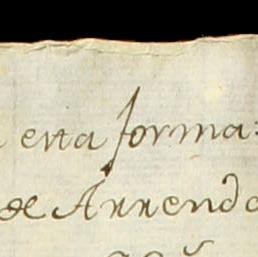 esta forma:
de Arrendo